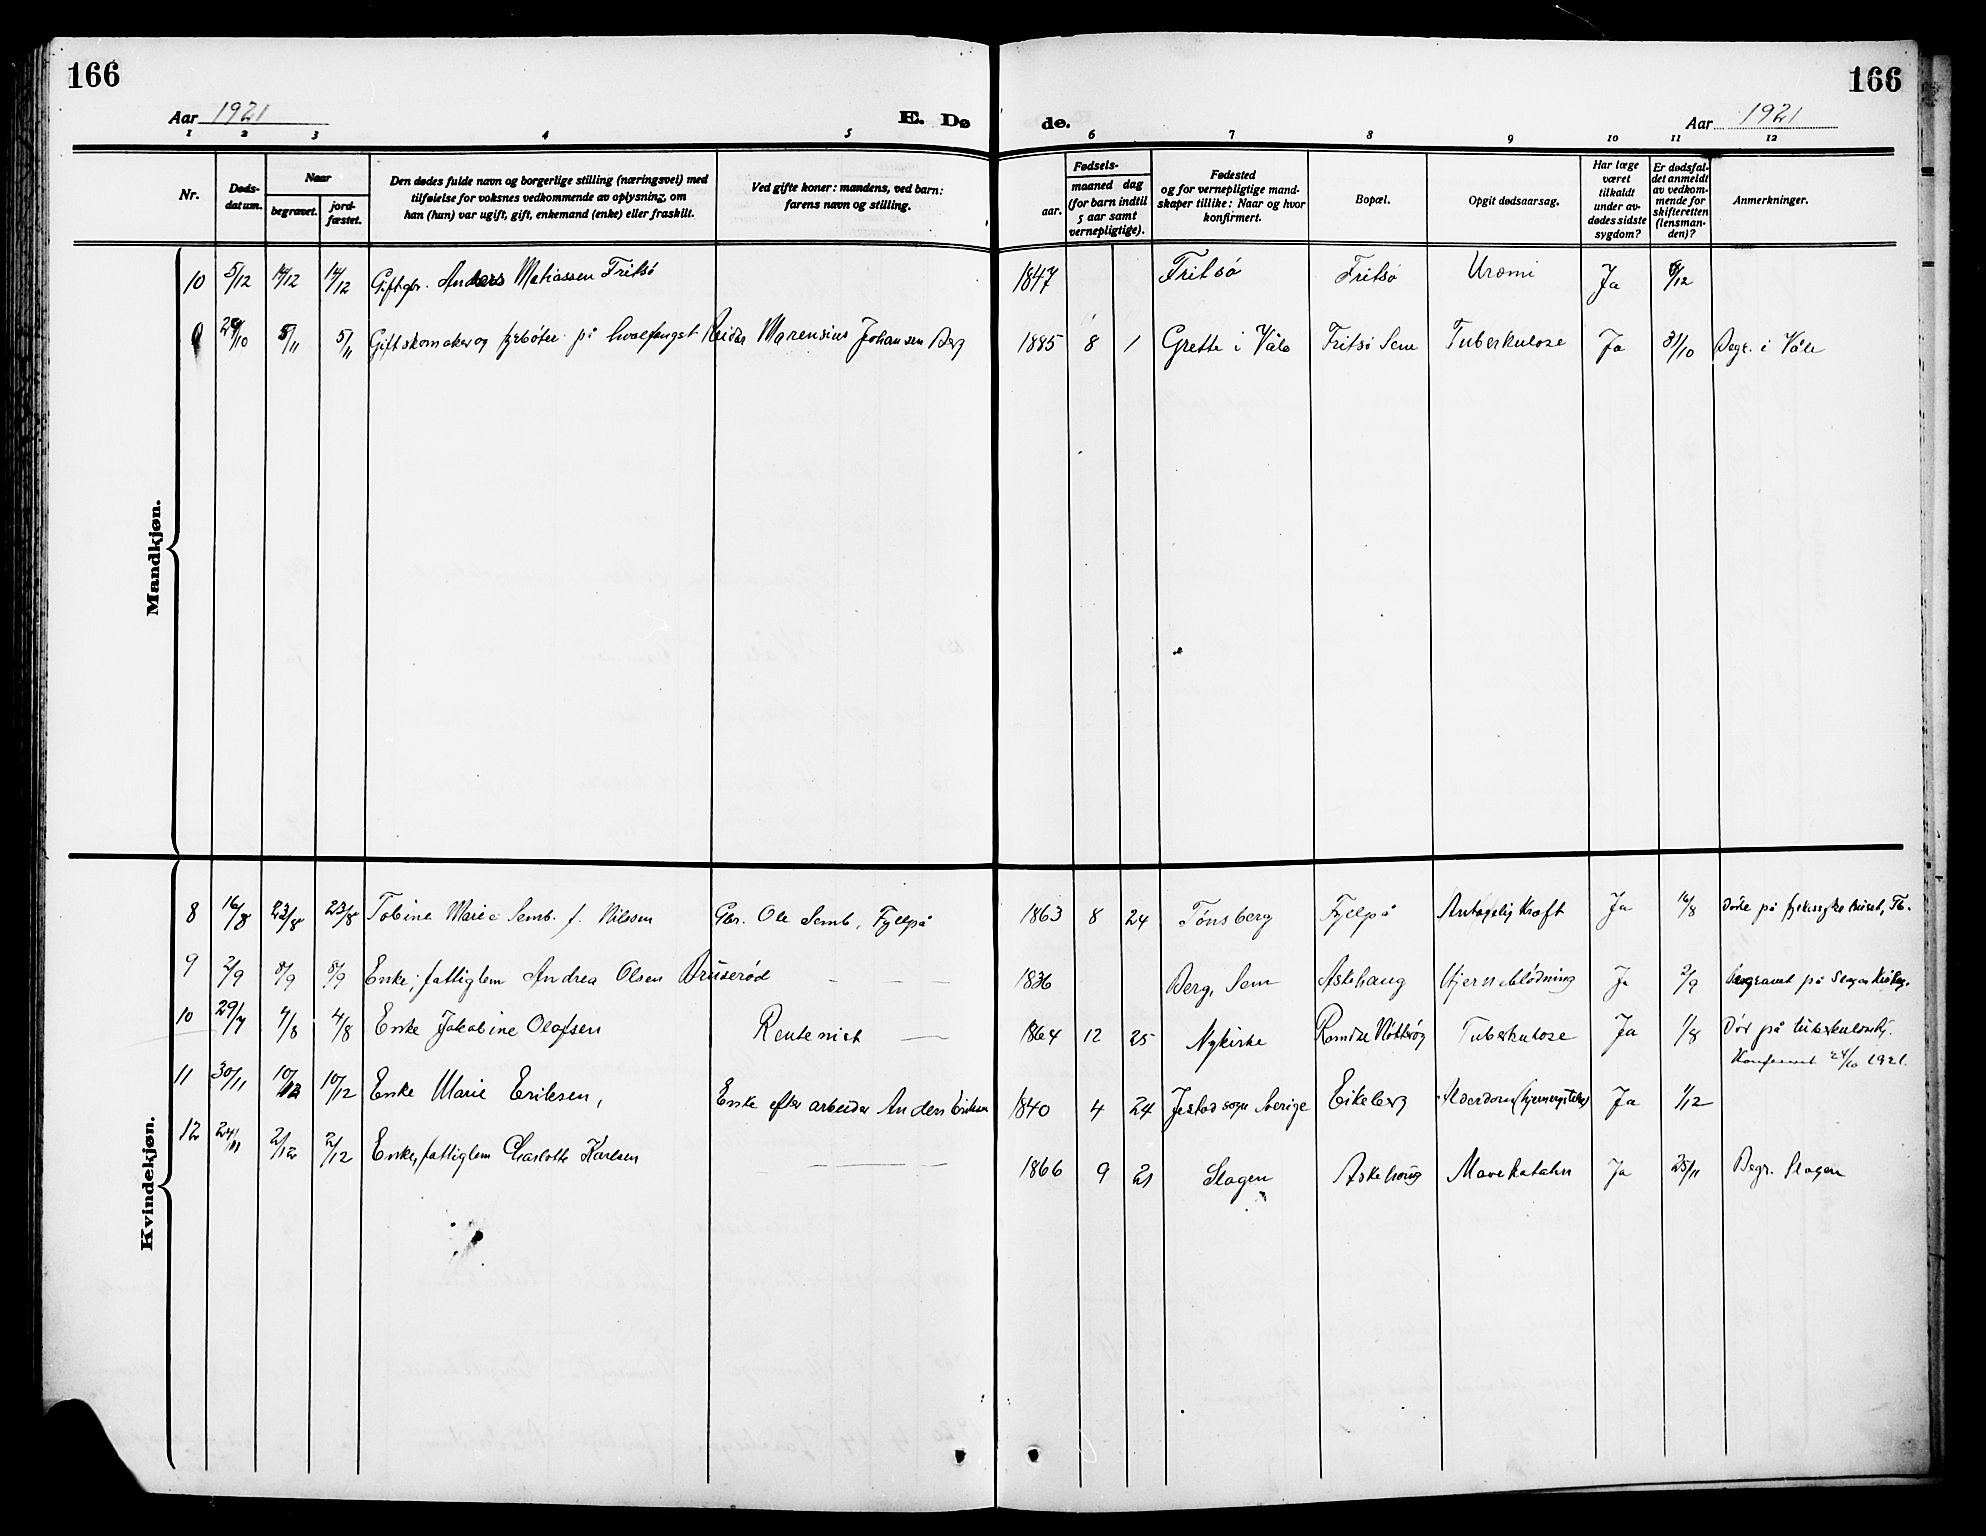 166
166
Aar 1921
E. Dø
de.
Aar 1921
1 2 3 4 5 6 7 8 9 10 11 12
Nr.
Døds-
datum.
Naar
begravet.
jord-
fæstet.
Den dødes fulde navn og borgerlige stilling (næringsvei) med
tilføielse for voksnes vedkommende av oplysning, om
han (hun) var ugift, gift, enkemand (enke) eller fraskilt.
Ved gifte koner: mandens, ved barn:
farens navn og stilling.
Fødsels-
aar.
maaned dag
(for barn indtil
5 aar samt
vernepligtige).
Fødested
og for vernepligtige mand-
skaper tillike: Naar og hvor
konfirmert.
Bopæl.
Opgit dødsaarsag.
Har læge
været
tilkaldt
under av-
dødes sidste
sygdom?
Er dødsfal-
det anmeldt
av vedkom-
mende for
skifteretten
(lensman-
den)?
Anmerkninger.
Mandkjøn.
10 5/12 14/12 14/12 Gift gbr. Anders Matiassen Fritsø 1847 Fritsø Fritsø Uræmi Ja /12
9 29/10 5/11 5/11 Gift skomaker og fyrbøter på hvalfangst Reidar Marensius Johansen Berg 1885 8 1 Grette i Våle Fritsø Sem Tuberkulose Ja 31/10 Begr. i Våle
Kvindekjøn.
8 16/8 23/8 23/8 Tobine Marie Semb f. Nilssen Gbr. Ole Semb, Fyllpå 1863 8 24 Tønsberg Fyllpå Antagelig Kræft Ja 16/8 Døde på fylkessykehuset, Tb.
9 2/9 8/9 8/9 Enke, fattiglem Andrea Olsen Bruserød — — — 1836 Berg, Sem Askehaug Hjerneblødning Ja 2/9 Begravet på Slagen Kirkeg.
10 29/7 4/8 4/8 Enke Jakobine Olafsen Rentenist — 1864 12 25 Nykirke Nøtterøy Tuberkulose Ja 1/8 Død på tuberkulosehj.
24/10 1921.
11 30/11 10/12 10/12 Enke Marie Eriksen, Enke efter arbeider Anders Eriksen 1840 4 24 sogn Sverige Eikeberg Alderdom Ja 1/12
12 24/11 2/12 2/12 Enke, fattiglem Charlotte Karlsen — — — 1866 9 21 Slagen Askehoug Mavekatahr Ja 25/11 Begr. Slagen